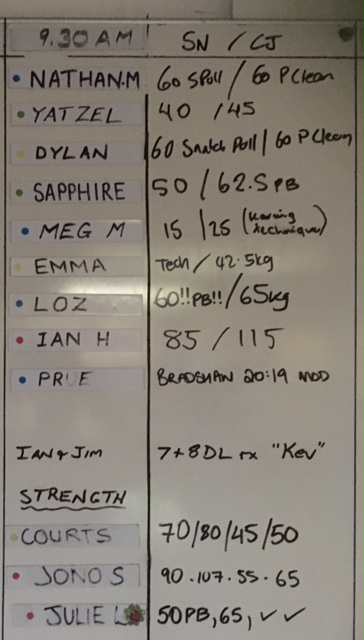 9.30 AM SN / CJ
NATHAN.M 60 SPoll / 60 P Clean
YATZEL 40 / 45
DYLAN 60 Snatch Poll / 60 P Clean
SAPPHIRE 50 / 62.5 PB
MEG M 15 / 25 (technique)
EMMA Tech / 42.5kg
LOZ 60!!PB!! / 65kg
IAN H 85 / 115
PRUE BRADSHAW 20:19 MOD
IAN & JIM 7+8 DL rx "Kev"
STRENGTH
COURTS 70/80/45/50
JONO S 90.107.55.65
JULIE L 50PB, 65, ✓ ✓